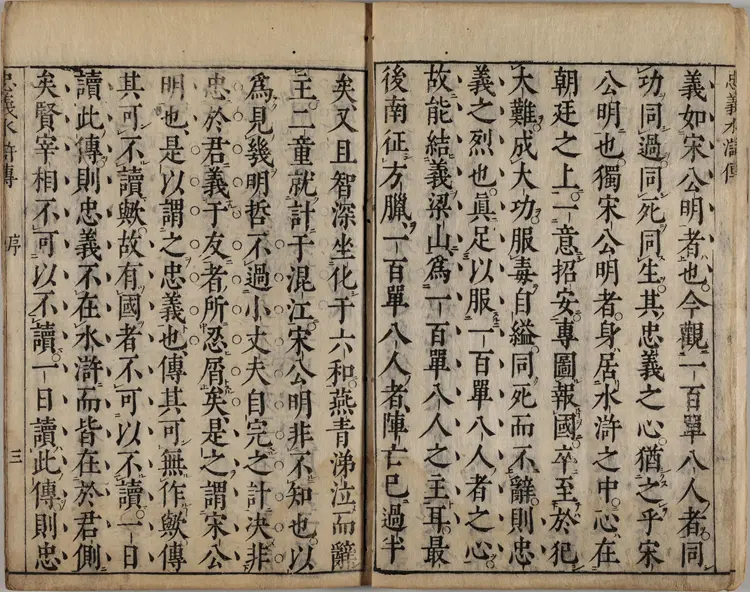 忠義水滸傳
義如宋公明者也。今觀一百單八人者。同
功同過。同死同生。其忠義之心。猶之乎宋
公明也。獨宋公明者。身居水滸之中。心在
朝廷之上。一意招安。專圖報國。卒至於犯
大難。成大功。服毒自縊。同死而不辭。則忠
義之烈也。眞足以服一百單八人者之心。
故能結義梁山。爲一百單八人之主耳。最
後南征方臘。一百單八人者。陣亡已過半
矣。又且智深坐化于六和。燕青涕泣而辭
主。二童就計于混江。宋公明非不知也。以
爲見幾明哲。不過小丈夫自完之計。決非
忠於君義于友者所忍屑矣。是之謂宋公
明也。是以謂之忠義也。傳其可無作歟。傳
其可不讀歟。故有國者不可以不讀。一日
讀此傳。則忠義不在水滸。而皆在於君側
矣。賢宰相不可以不讀。一日讀此傳。則忠
忠義水滸傳 序 三